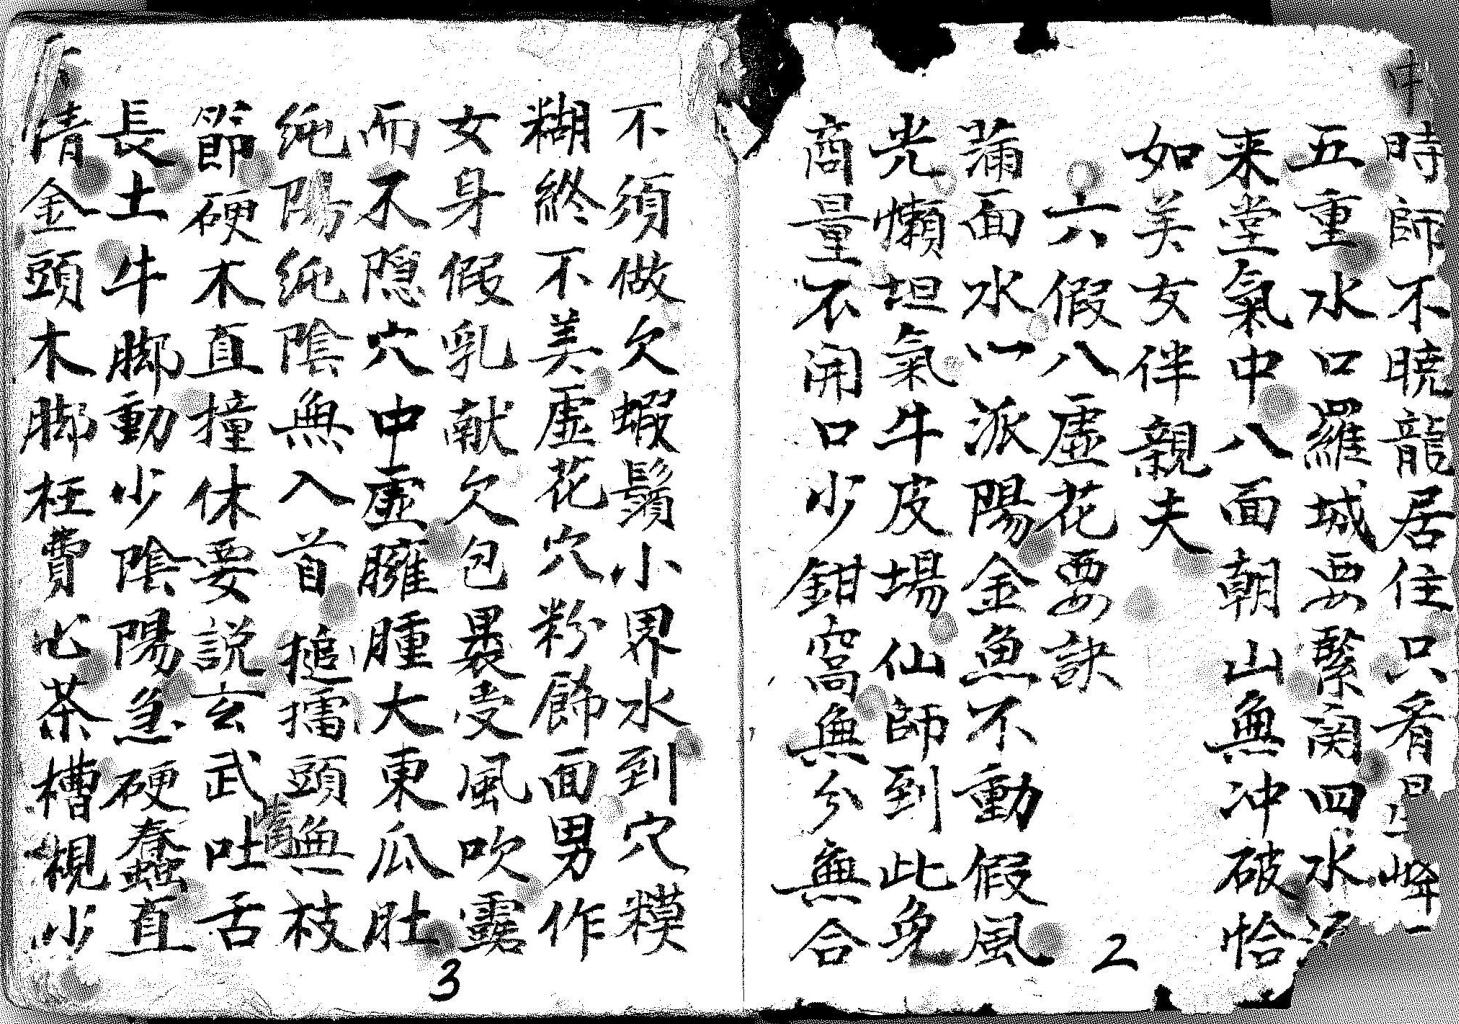 時師不暁龍居住只看星峰
五重水口羅城要緊関四水
来堂氣中八面朝山無冲破恰
如美女伴親夫
六假八虛花要訣
蒲面水一派陽金魚不動假風
光懶坦氣牛皮場仙師到此免
商量不開口少鉗窩無分無合
2
不須做欠蝦鬚小界水到穴糢
糊終不美虛花穴粉飾面男作
女身假乳献欠包裹受風吹露
而不隐穴中虛臃腫大東瓜肚
純陽純陰無入首搥擂頭無枝
節硬木直撞休要説玄武吐舌
長土牛脚動少陰陽急硬蠢直
情金頭木脚枉費心茶槽視少
3